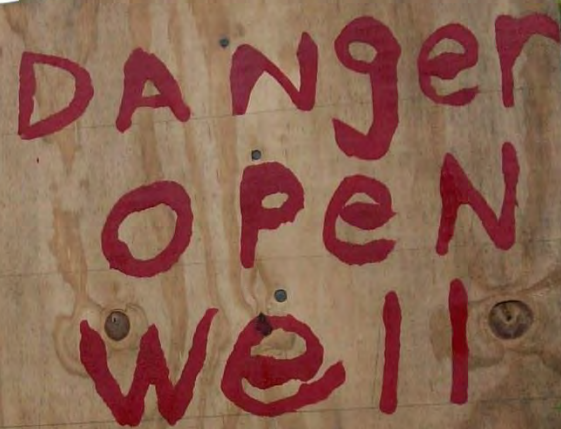 DANger
OPeN
Well